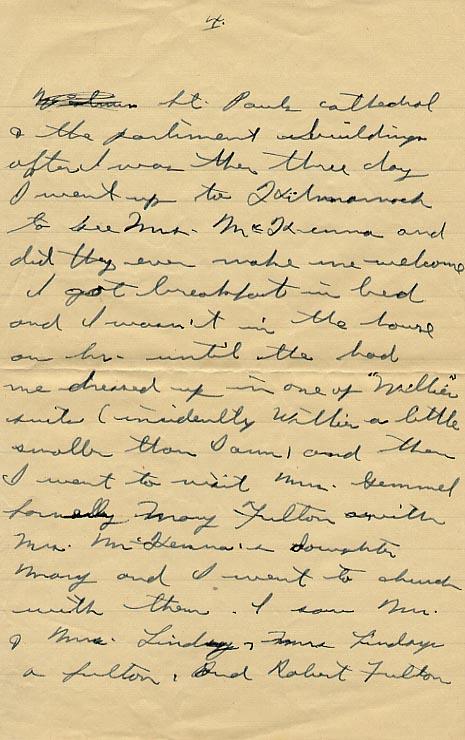 4.
St. Pauls cathedral
& the parliment buildings
after I was ther three day
I went up to Kilmarnock
to see Mrs. McKenna and
did they ever make me welcome
I got breakfast in bed
and I wasn't in the house
an hr. until the had
me dressed up in one of "Willies"
suits (incidently Willie a little
smaller than I am) and then
I went to visit Mrs. Gemmel
formelly Mary Fulton with
Mrs. McKenna's daughter
Mary and I went to church
with them. I saw Mr.
& Mrs. Lindsay, Mrs Lindsays
a fulton, and Robert Fulton